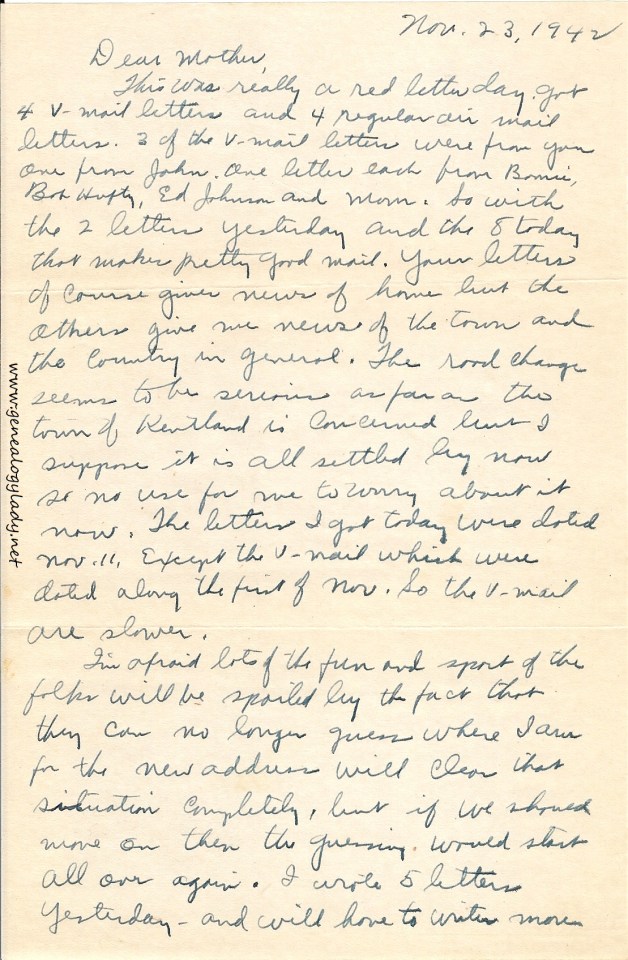 Nov. 23, 1942
Dear Mother,
This was really a red letter day. got
4 V-mail letters and 4 regular air mail
letters. 3 of the V-mail letters were from you
one from John. One letter each from Bonnie,
Bob Hufty, Ed Johnson and Mom. So with
the 2 letters yesterday and the 8 today
that makes pretty good mail. Your letters
of course gives news of home but the
others give me news of the town and
the Country in general. The road change
seems to be serious as far as the
town of Kentland is Concerned but I
suppose it is all settled by now
so no use for me to worry about it
now. The letters I got today were dated
Nov. 11, Except the V-mail which were
dated along the first of Nov. So the V-mail
are slower.
I'm afraid lots of the fun and sport of the
folks will be spoiled by the fact that
they can no longer guess where I am
for the new address will Clear that
situation Completely, but if we should
move on then the guessing would start
all over again. I wrote 5 letters
yesterday - and will have to write more
www.genealogylady.net